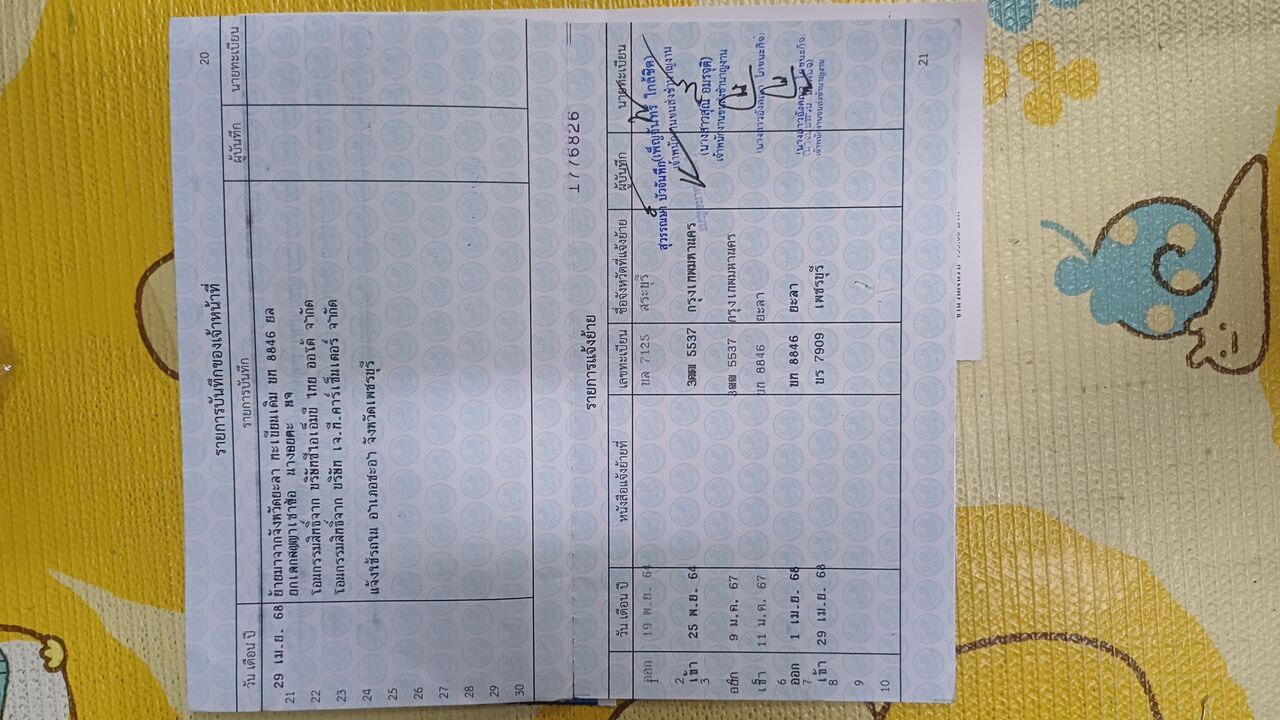 20
รายการบันทึกของเจ้าหน้าที่
วัน เดือน ปี รายการบันทึก ผู้บันทึก นายทะเบียน
29 เม.ย. 68 ย้ายมาจากจังหวัดยะลา ทะเบียนเดิม บท 8846 ยล
21 ยกเลิกสัญญาเช่าซื้อ
22 โอนกรรมสิทธิ์จาก บริษัทซีไอเอ็มบี ไทย ออโต้ จำกัด
23 โอนกรรมสิทธิ์จาก บริษัท เจ.ที.คาร์เซ็นเตอร์ จำกัด
24 แจ้งใช้รถใน อำเภอชะอำ จังหวัดเพชรบุรี
25
26
27
28
29
30
1776826
รายการแจ้งย้าย
วัน เดือน ปี หนังสือแจ้งย้ายที่ เลขทะเบียน ชื่อจังหวัดที่แจ้งย้าย ผู้บันทึก นายทะเบียน
1 ออก 19 พ.ย. 64 บล 7125 สระบุรี
2 เข้า 25 พ.ย. 64 3ฒฒ 5537 กรุงเทพมหานคร
3
ออก 9 ม.ค. 67 3ฒฒ 5537 กรุงเทพมหานคร
5 เข้า 11 ม.ค. 67 บท 8846 ยะลา
6 ออก 1 เม.ย. 68 บท 8846 ยะลา
7 เข้า 29 เม.ย. 68 บร 7909 เพชรบุรี
8
9
10
21
สุวรรณษา บัวจันทึก (เพ็ญจันทร์ ใกล้ชิด)
เจ้าพนักงานขนส่งชำนาญงาน
(นางสาวสุณี อมรจุติ)
เจ้าพนักงานขนส่งชำนาญงาน
เจ้าพนักงานขนส่งชำนาญงาน